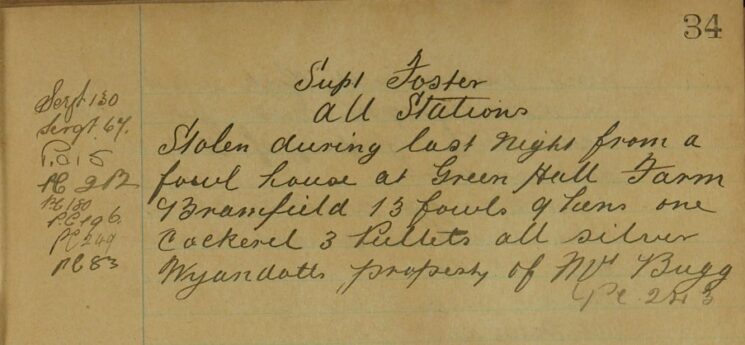 34
Supt Foster
All Stations
Stolen during last night from a
fowl house at Green Hall Farm
Bramfield 13 fowls 9 hens one
Cockerel 3 Pullets all silver
Wyandotts property of Mr Bugg
Sergt 130
Sergt 67.
PC 212
PC 180
PC 196.
PC 249
PC 83